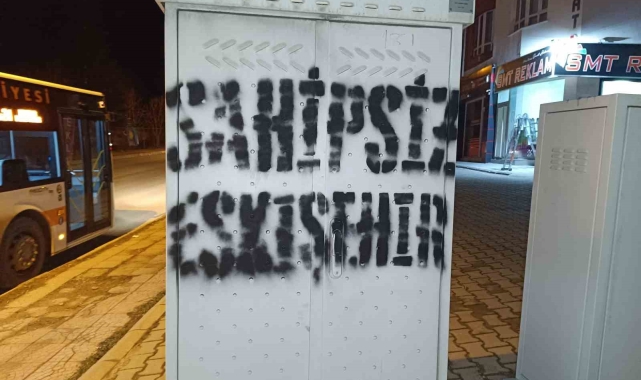 SAHİPSİZ
ESKİŞEHİR
İYESİ
SMT REKLAM
SMT R